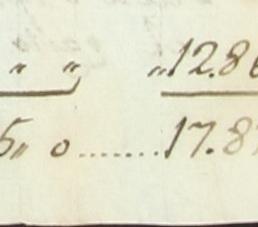 " " "12.8
5" 0........17.8